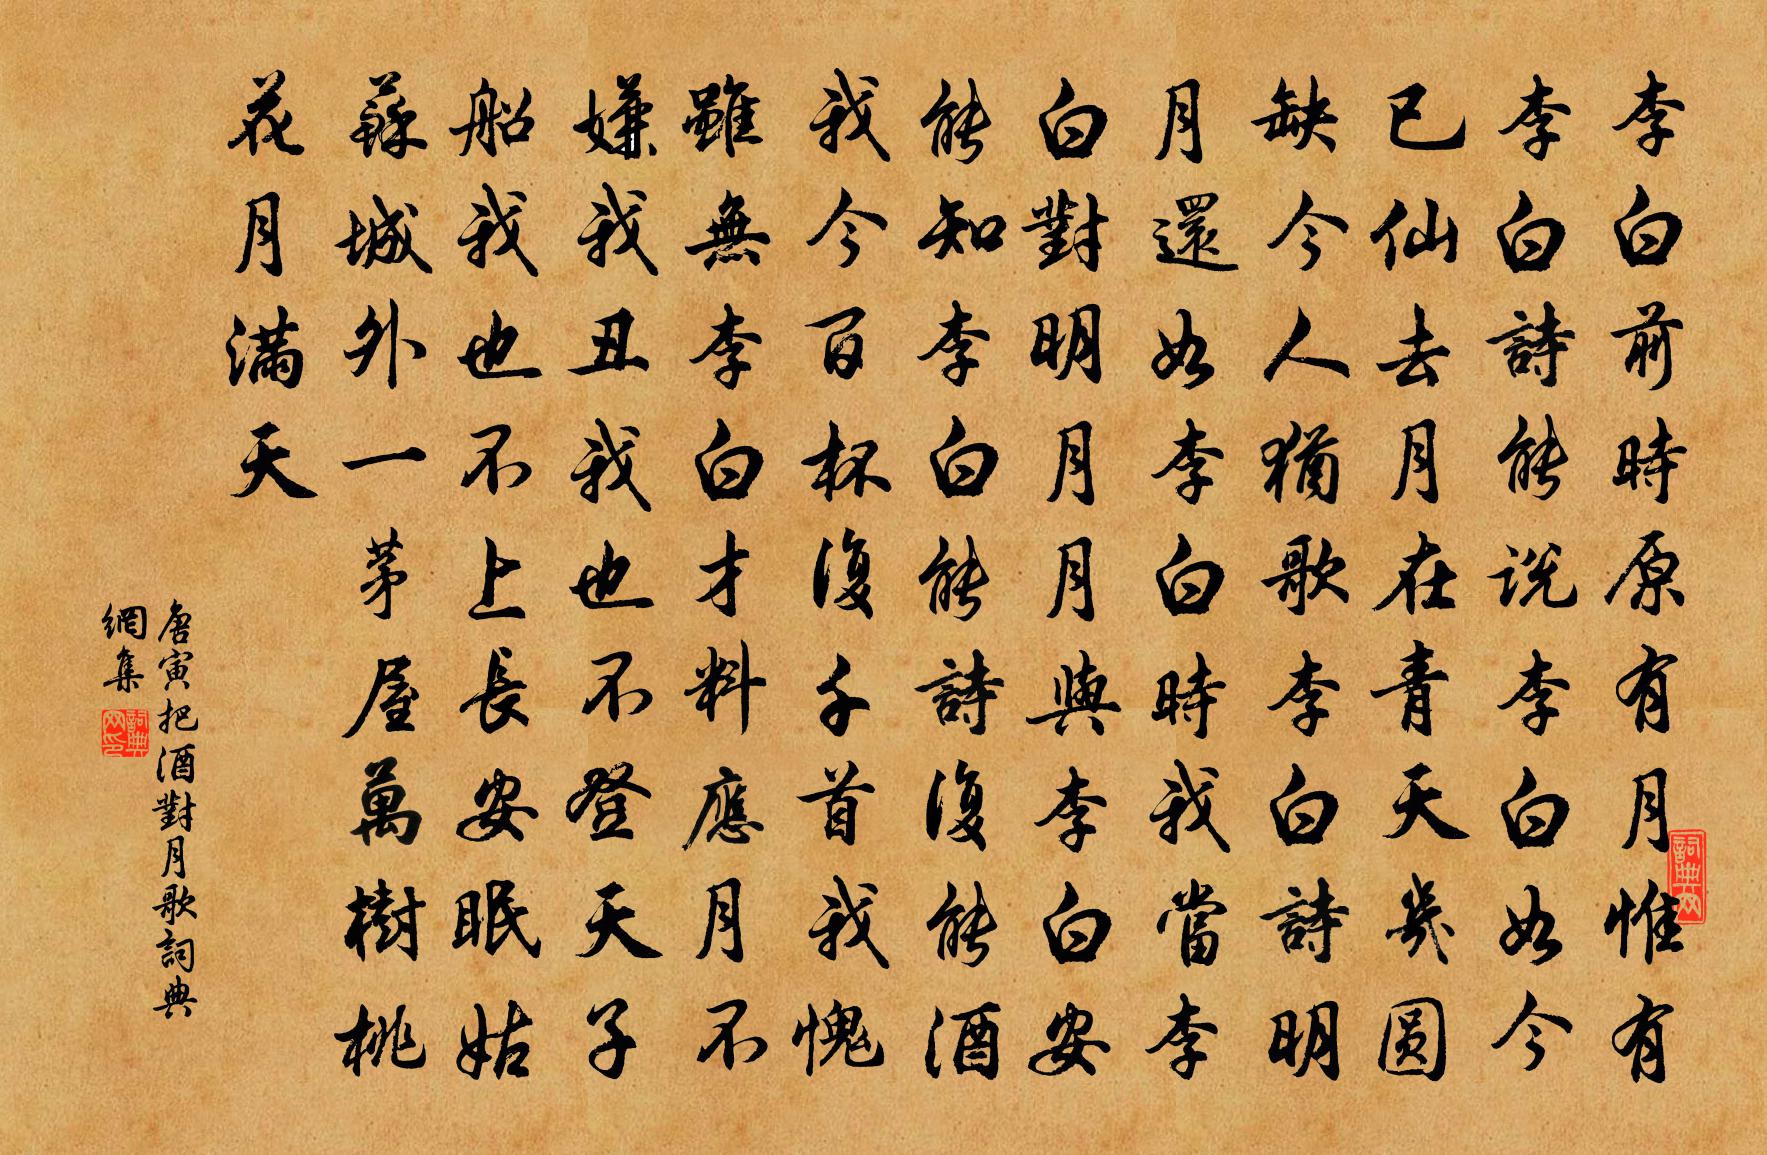 李白前時原有月惟有
李白詩能说李白如今
已仙去月在青天幾圆
缺今人猶歌李白詩明
月還如李白時我當李
白對明月月與李白安
能知李白能詩復能酒
我今百杯復千首我愧
雖無李白才料應月不
嫌我丑我也不登天子
船我也不上長安眠姑
蘇城外一茅屋萬樹桃
花月满天
唐寅把酒對月歌詞典
網集
詞典网印
詞典网